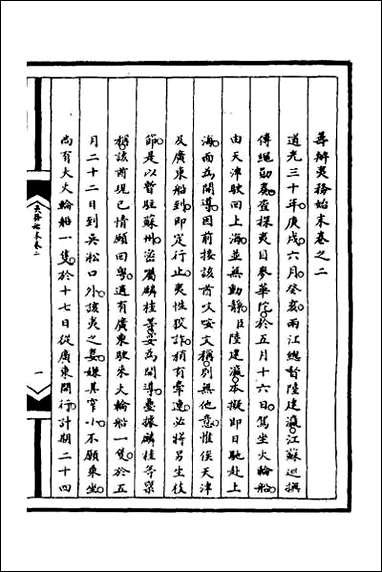 籌辦夷務始末卷之二
道光三十年庚戌六月癸亥兩江總督陸建瀛江蘇巡撫
傅繩勛奏查探夷目麥華陀於五月十六日駕坐火輪船
由天津駛回上海並無動靜臣陸建瀛本擬即日馳赴上
海面為開導因前接該酋吠咹文稱別無他意惟俟天津
及廣東船到即定行止夷性狡詐稍有牽連必將另生枝
節是以暫駐蘇州密屬麟桂等妥為開導疊據麟桂等稟
稱該酋現已情願回粵適有廣東駛來火輪船一隻於五
月二十二日到吳淞口外該夷之妻嫌其窄小不願乘坐
尚有大火輪船一隻於十七日從廣東開行計期二十四
夷務始末卷二
一